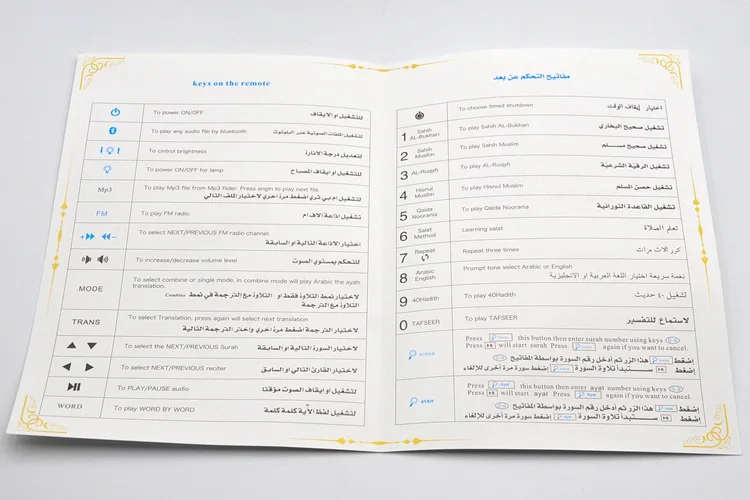 keys on the remote
To power ON/OFF للتشغيل او الايقاف
To play any audio file by bluetooth لتشغيل الملفات الصوتية عبر البلوتوث
To cintrol brightness لتعديل درجة الانارة
To power ON/OFF for lamp للتشغيل او ايقاف المصباح
Mp3 To play Mp3 file from Mp3 filder: Press angin to play next file.
لتشغيل ام بي ثري اضغط مرة اخري لاختيار الملف التالي
FM To play FM radio لتشغيل اذاعة الاف ام
To select NEXT/PREVIOUS FM radio channel.
اختيار الاذاعة التالية او السابقة
To increase/decrease volume level للتحكم بمستوي الصوت
MODE To select combine or single mode. In combine mode will play Arabic the ayah
translation.
لاختيار نمط التلاوة فقط او التلاوة مع الترجمة في نمط Combine
التلاوة مع الترجمة
TRANS To select Translation, press again will select next translation
لاختيار الترجمة اضغط مرة اخري واختر الترجمة التالية
To select the NEXT/PREVIOUS Surah لاختيار السورة التالية او السابقة
To select NEXT/PREVIOUS reciter لاختيار القارئ التالي او السابق
To PLAY/PAUSE audio لتشغيل او ايقاف الصوت مؤقتا
WORD To play WORD BY WORD لتشغيل لفظ الآية كلمة كلمة
مفاتيح التحكم عن بعد
To choose timed shutdown اختيار إيقاف الوقت
1 Sahih AL-Bukhari To play Sahih AL-Bukhari تشغيل صحيح البخاري
2 Sahih Muslim To play Sahih Muslim تشغيل صحيح مسلم
3 AL-Ruqyh To play AL-Ruqyh تشغيل الرقية الشرعية
4 Hisnul Muslim To play Hisnul Muslim تشغيل حصن المسلم
5 Qaida Noorania To play Qaida Noorania تشغيل القاعدة النورانية
6 Salat Method Learning salat تعلم الصلاة
7 Repeat Repeat three times كرر الاث مرات
8 Arabic English Prompt tone select Arabic or English
نغمة سريعة اختيار اللغة العربية او الإنجليزية
9 40Hadith To play 40Hadith لتشغيل ٤٠ حديث
0 TAFSEER To play TAFSEER لاستماع للتفسير
SURAH Press this button then enter surah number using keys 0-9
Press will start surah Press again if you want to cancel.
إضغط هذا الزر ثم أدخل رقم السورة بواسطة المفاتيح 0-9
إضغط ستبدأ تلاوة السورة إضغط مرة أخرى للإلغاء
AYAH Press Ayah this button then enter ayat number using keys 0-9
Press will start ayat Press Ayah again if you want to cancel.
إضغط Ayah هذا الزر ثم أدخل رقم السورة بواسطة المفاتيح 0-9
إضغط ستبدأ تلاوة السورة إضغط Ayah سورة مرة أخرى للإلغاء